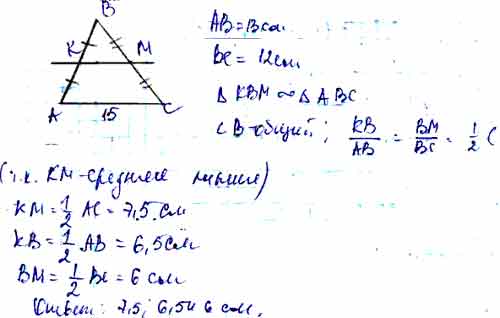 B
K M
A 15 C
AB = 13 см
BC = 12 см
Δ KBM ∾ Δ ABC
∠B - общий; KB/AB = BM/BC = 1/2 (
(т.к. KM - средняя линия)
KM = 1/2 AC = 7,5 см
KB = 1/2 AB = 6,5 см
BM = 1/2 BC = 6 см
Ответ: 7,5; 6,5 и 6 см.